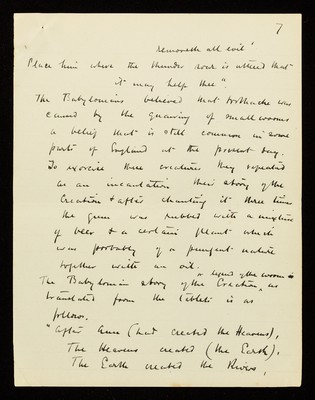 7
removeth all evil'
Place him where the thunder word is uttered that
it may help thee".
The Babylonians believed that toothache was
caused by the gnawing of small worms
a belief that is still common in some
parts of England at the present day.
To exorcise these creatures they repeated
as an incantation their story of the
Creation & after chanting it three times
the gum was rubbed with a mixture
of beer & a certain plant which
was probably of a pungent nature
together with an oil.
or legend of the worm
The Babylonian story of the Creation, as
translated from the tablets is as
follows.
"After Anu (had created the Heavens),
The Heavens created (the Earth),
The Earth created the Rivers,